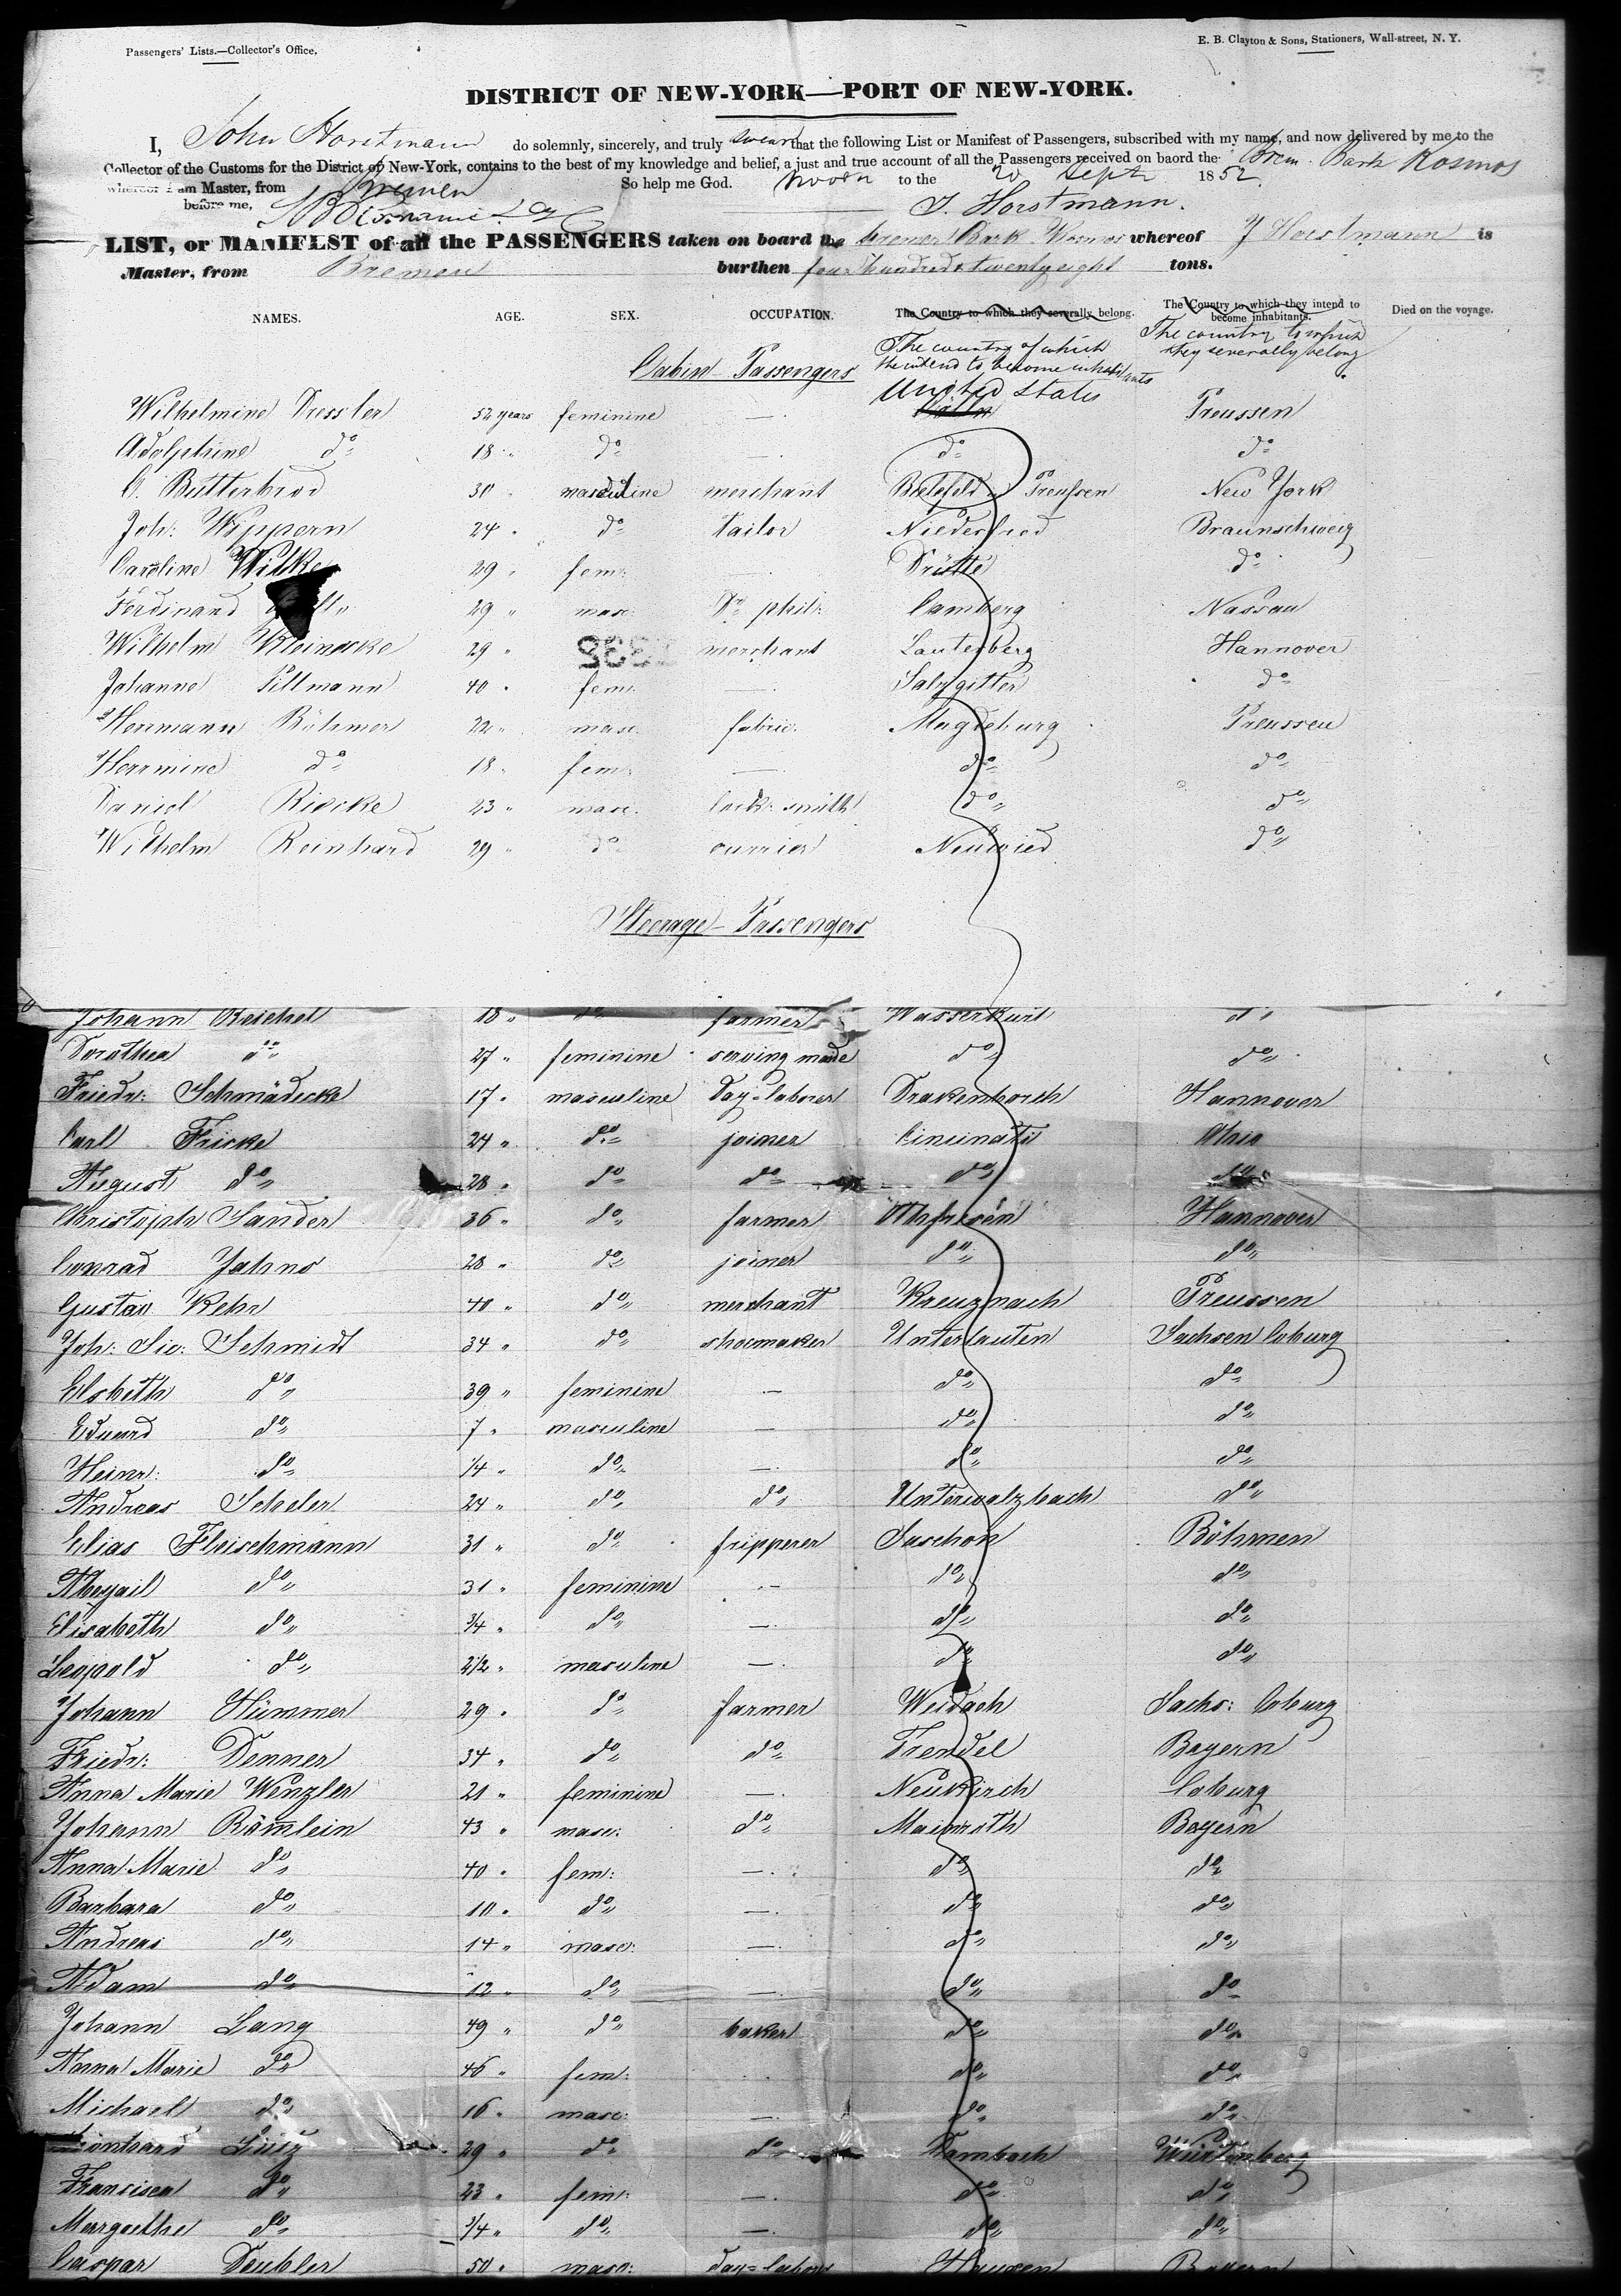 Passengers' Lists.—Collector's Office,
E. B. Clayton & Sons, Stationers, Wall-street, N. Y.
DISTRICT OF NEW-YORK—PORT OF NEW-YORK.
I, John Horstmann do solemnly, sincerely, and truly swear that the following List or Manifest of Passengers, subscribed with my name, and now delivered by me to the
Collector of the Customs for the District of New-York, contains to the best of my knowledge and belief, a just and true account of all the Passengers received on baord the Brem. Bark Kosmos
whereof I am Master, from Bremen So help me God. Sworn to the 20 Sept 1852.
before me, J. Horstmann.
LIST, or MANIFEST of all the PASSENGERS taken on board the Bremer Bark Kosmos whereof J Horstmann is
Master, from Bremen burthen four hundred & twenty eight tons.
NAMES. AGE. SEX. OCCUPATION. The Country to which they severally belong. The Country to which they intend to become inhabitants. Died on the voyage.
The country of which the intend to become inhabitants The country to which they severally belong
Cabin Passengers
Wilhelmine Dressler 52 years feminine — United States Preussen
Adolphine do 18 " do — do do
C. Butterbrod 30 " masculine merchant Bielefeld Preussen New York
Joh: Wippern 24 " do tailor Braunschweig
Caroline Wilke 29 " fem: — Drütte do
Ferdinand 29 " masc: Dr phil: Camberg Nassau
Wilhelm Kleinecke 29 " merchant Lauterberg Hannover
Johanne Pillmann 40 " fem: — Salzgitter do
Herrmann Böhmer 22 " masc. fabric. Magdeburg Preussen
Herrmine do 18 " fem: — do do
Daniel Riecke 23 " masc. lock: smith do do
Wilhelm Reinhard 29 " do currier Neuwied do
Steerage Passengers
Johann Reichel 18 " do farmer Wasserkurl do
Dorothea do 27 " feminine serving made do do
Friedr: Schmädecke 17 " masculine Day-laborer Drakenborch Hannover
Carl Fricke 24 " do joiner Cincinati Ohio
August do 28 " do do do do
Christoph Sander 36 " do farmer Othfresen Hannover
Conrad Jahns 28 " do joiner do do
Gustav Kehr 40 " do merchant Kreuznach Preussen
Joh: Sic: Schmidt 34 " do shoemaker Unterlauten Sachsen Coburg
Elsbeth do 39 " feminine — do do
Eduard do 7 " masculine — do do
Heinr: do 1/4 " do — do do
Andreas Scheler 24 " do do Unterwalzbach do
Elias Fleischmann 31 " do fripperer Saschon Böhmen
Abygail do 31 " feminine — do do
Elisabeth do 3/4 " do — do do
Leopold do 2 1/2 " masculine — do do
Johann Hümmer 29 " do farmer Weidach Sachs: Coburg
Friedr: Denner 34 " do do Trendel Bayern
Anna Marie Wenzler 21 " feminine — Neukirch Coburg
Johann Römlein 43 " masc: do Mainroth Bayern
Anna Marie do 40 " fem: — do do
Barbara do 10 " do — do do
Andreas do 14 " masc: — do do
Adam do 12 " do — do do
Johann Lang 49 " do baker do do
Anna Marie do 46 " fem: do do
Michael do 16 " masc: — do do
Leonhard Lutz 29 " do do Dambach Würtemberg
Francisca do 23 " fem: — do do
Margarethe do 3/4 " do — do do
Caspar Deubler 50 " masc: day-laborer Hausen Bayern